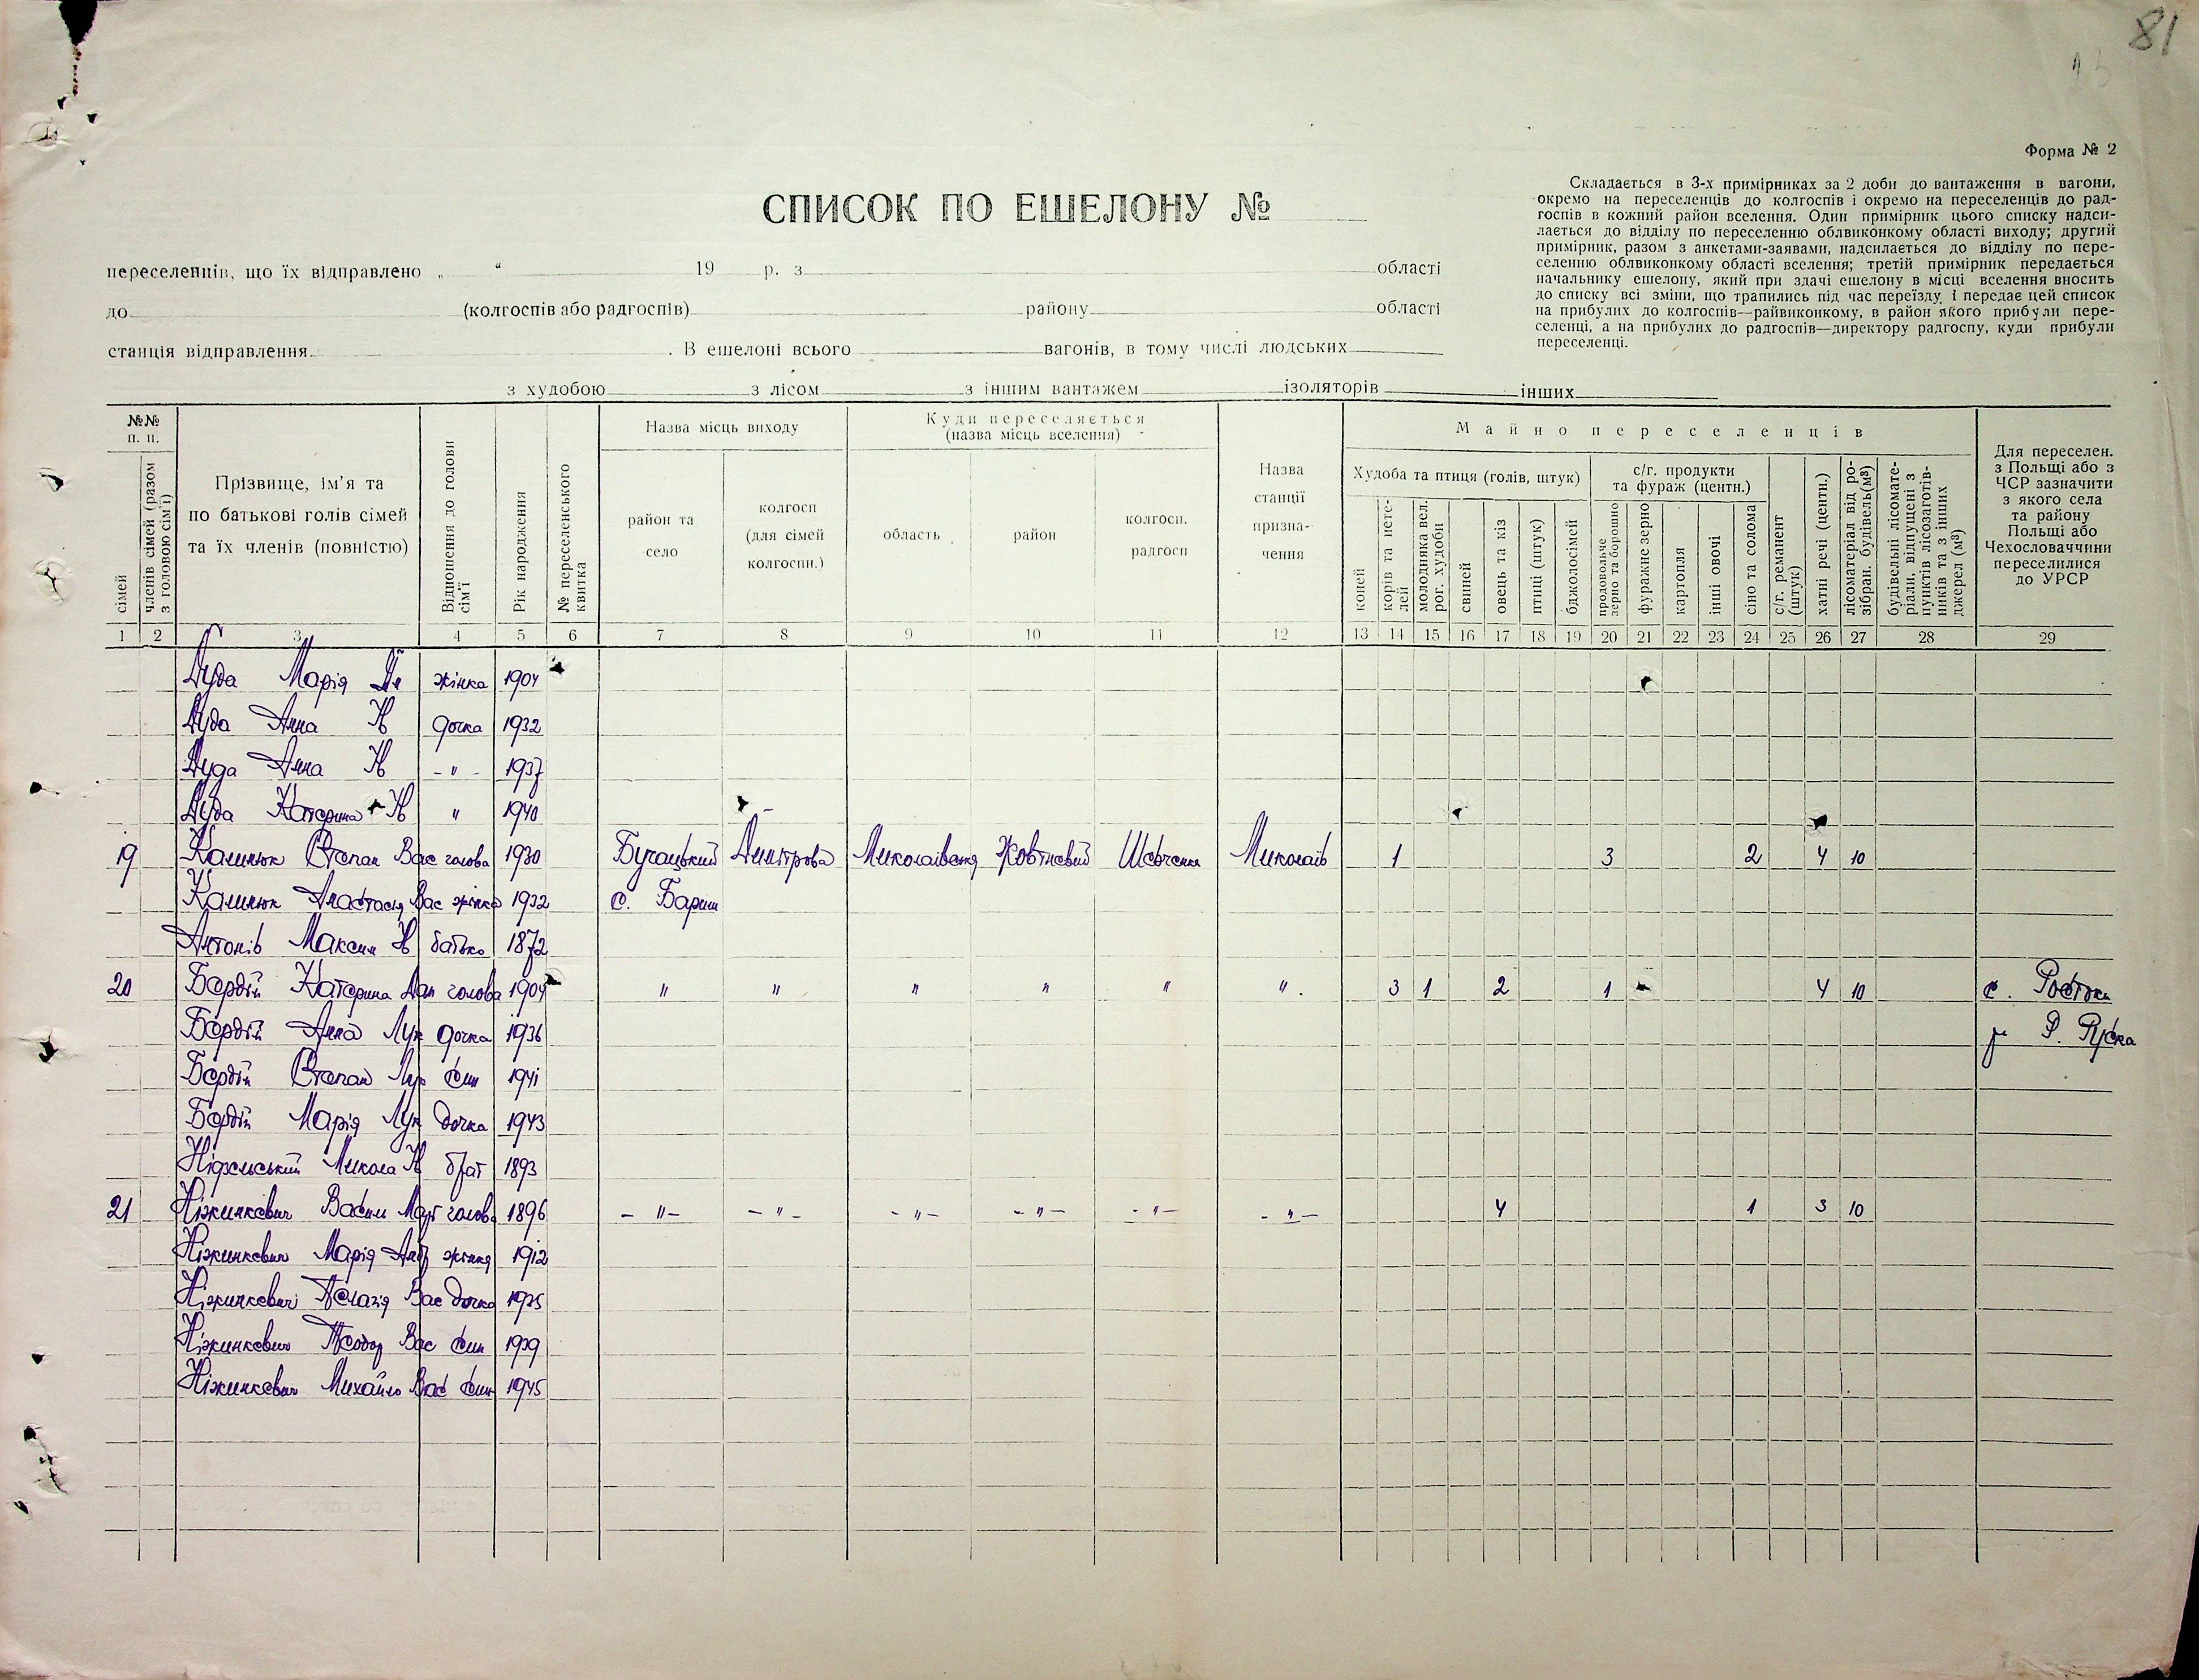 81
15
Форма № 2
СПИСОК ПО ЕШЕЛОНУ №
Складається в 3-х примірниках за 2 доби до вантаження в вагони,
окремо на переселенців до колгоспів і окремо на переселенців до рад-
госпів в кожний район вселення. Один примірник цього списку надси-
лається до відділу по переселенню облвиконкому області виходу; другий
примірник, разом з анкетами-заявами, надсилається до відділу по пере-
селенню облвиконкому області вселення; третій примірник передається
начальнику ешелону, який при здачі ешелону в місці вселення вносить
до списку всі зміни, що трапились під час переїзду, і передає цей список
на прибулих до колгоспів—райвиконкому, в район якого прибули пере-
селенці, а на прибулих до радгоспів—директору радгоспу, куди прибули
переселенці.
переселенців, що їх відправлено „ “ 19 р. з області
до (колгоспів або радгоспів) району області
станція відправлення . В ешелоні всього вагонів, в тому числі людських
з худобою з лісом з іншим вантажем ізоляторів інших
№№ п. п.
сімей
членів сімей (разом з головою сім'ї)
Прізвище, ім'я та
по батькові голів сімей
та їх членів (повністю)
Відношення до голови сім'ї
Рік народження
№ переселенського квитка
Назва місць виходу
район та село
колгосп (для сімей колгоспн.)
Куди переселяється
(назва місць вселення)
область
район
колгосп, радгосп
Назва станції призна-
чення
Майно переселенців
Худоба та птиця (голів, штук)
коней
корів та нете-
лей
молодняка вел.
рог. худоби
свиней
овець та кіз
птиці (штук)
бджолосімей
с/г. продукти
та фураж (центн.)
продовольче
зерно та борошно
фуражне зерно
картопля
інші овочі
сіно та солома
с/г. реманент
(штук)
хатні речі (центн.)
лісоматеріал від ро-
зібран. будівель (м³)
будівельні лісомате-
ріали, відпущені з
пунктів лісозаготів-
ників та з інших
джерел (м³)
Для переселен.
з Польщі або з
ЧСР зазначити
з якого села
та району
Польщі або
Чехословаччини
переселилися
до УРСР
1 2 3 4 5 6 7 8 9 10 11 12 13 14 15 16 17 18 19 20 21 22 23 24 25 26 27 28 29
Дуда Марія жінка 1904
Дуда Анна Н дочка 1932
Дуда Анна Н -"- 1937
Дуда Катерина Н " 1940
19 Калинюк Степан Вас голова 1930 Бучацький Димітрова Миколаївська Жовтневий Шевченка Миколаїв 1 3 2 4 10
Калинюк Анастасія Вас жінка 1932 с. Бариш
Антонів Максим Н батько 1872
20 Бордій Катерина Дан голова 1904 " " " " " " 3 1 2 1 4 10 с. Ростоки
Бордій Анна Лук дочка 1936 р Р. Руска
Бордій Степан Лук син 1941
Бордій Марія Лук дочка 1943
Микола Н брат 1893
21 Ніжинкевич Василь Март голова 1896 -"- -"- -"- -"- -"- -"- 4 1 3 10
Ніжинкевич Марія жінка 1912
Ніжинкевич Пелагія Вас дочка 1935
Ніжинкевич Теодор Вас син 1939
Ніжинкевич Михайло Вас син 1945